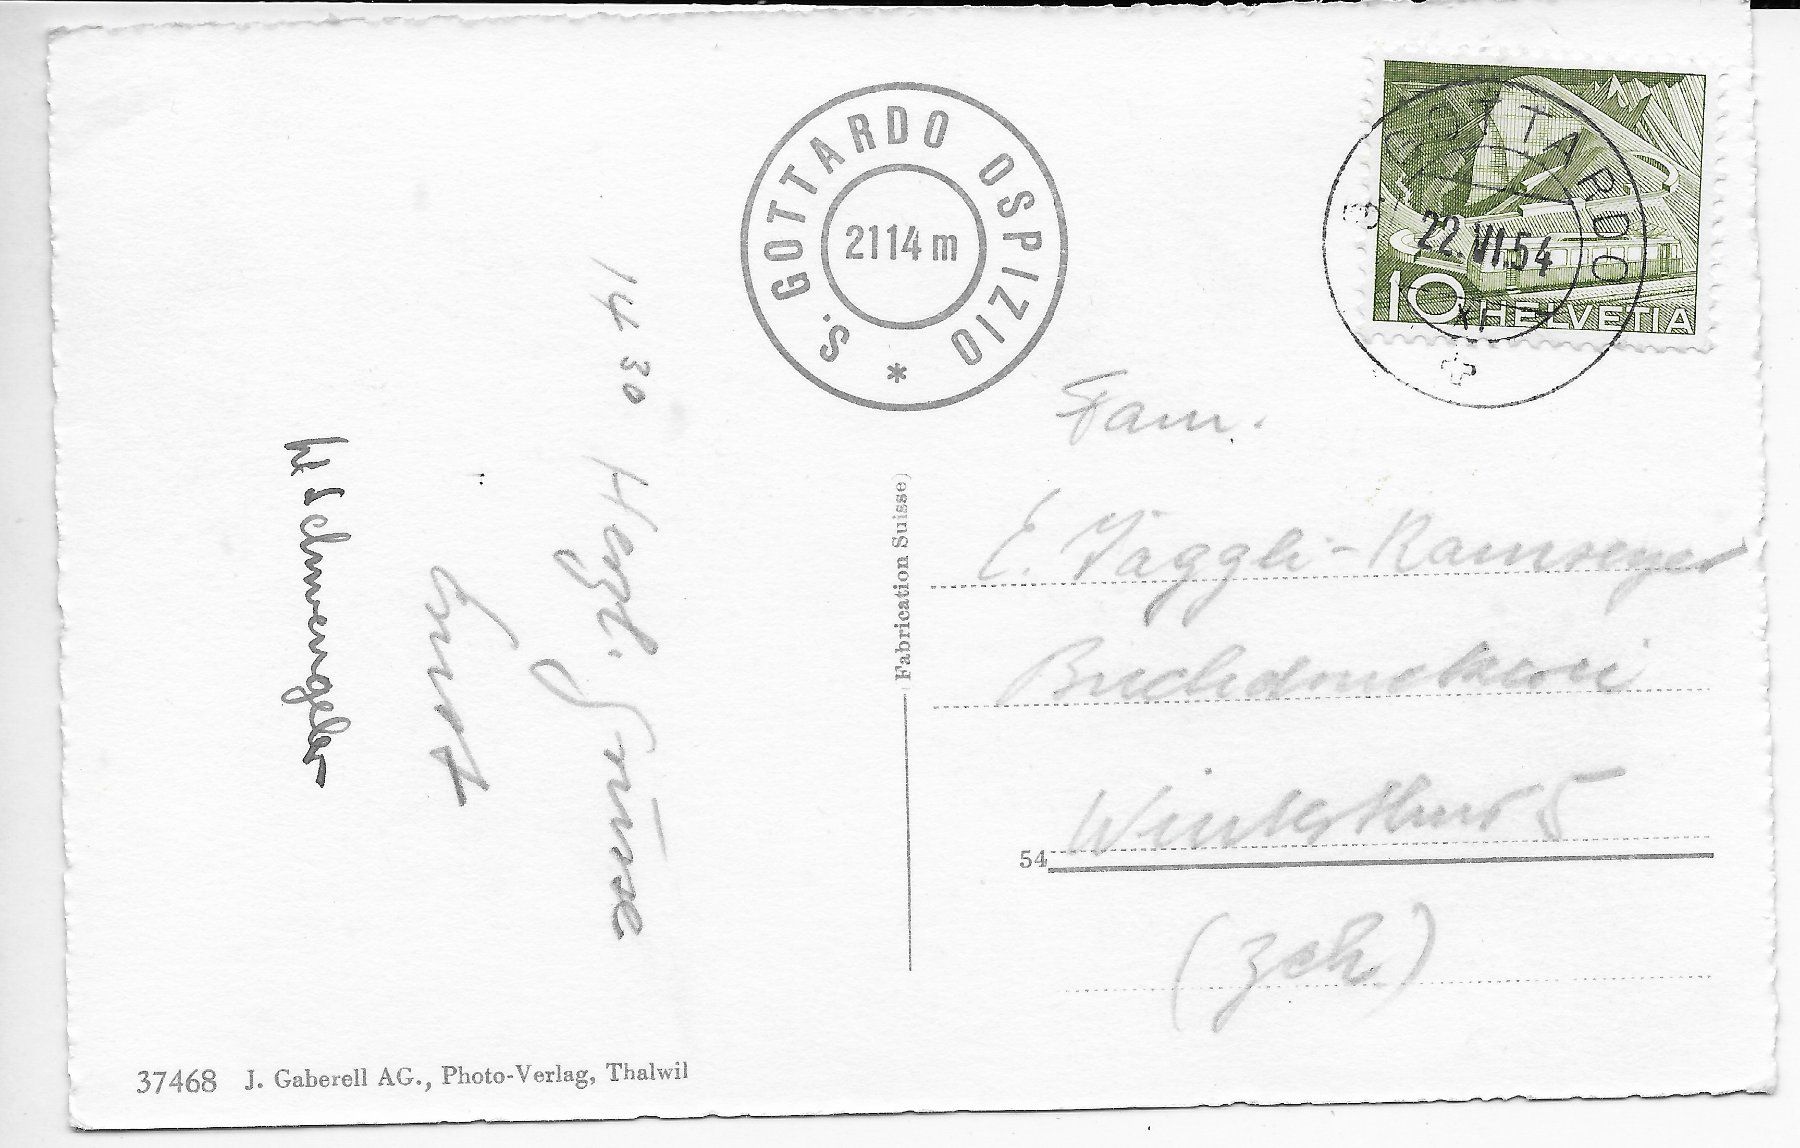 S. GOTTARDO OSPIZIO
2114 m
*
S. GOTTARDO
22.VI.54
XI
10 HELVETIA
14 30
Herzl. Grüsse
Ernst
Schwengeler
Fabrication Suisse
Fam.
E. Jäggli-Ramseyer
Buchdruckerei
Winterthur 5
(Zch.)
54
37468 J. Gaberell AG., Photo-Verlag, Thalwil